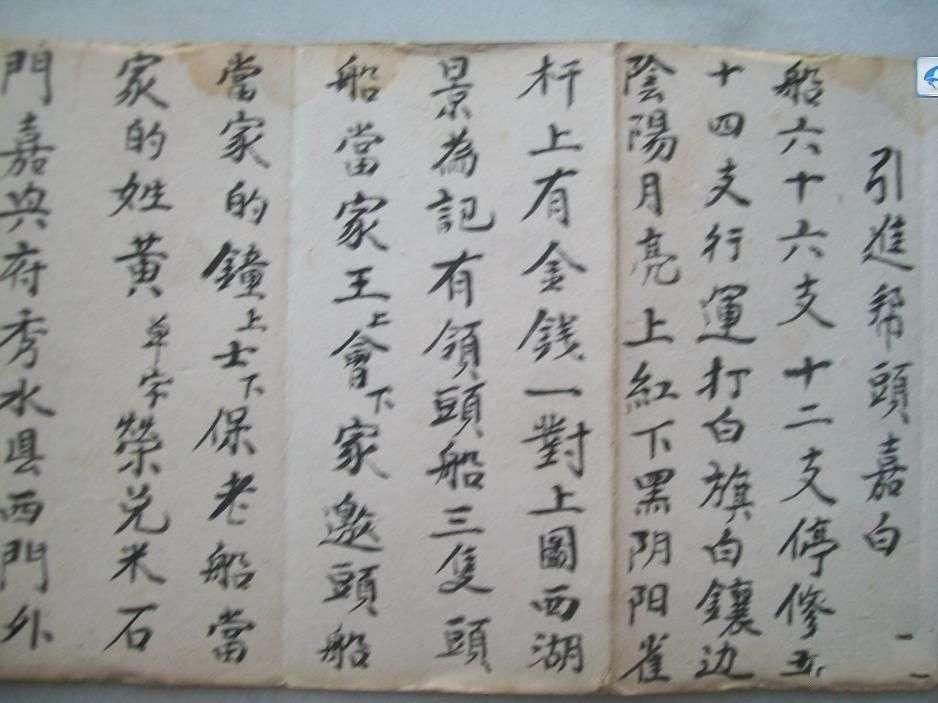 引進帮頭嘉白
船六十六支十二支停修五
十四支行運打白旗白鑲边
陰陽月亮上紅下黑阴阳雀
杆上有金錢一對上圖西湖
景為記有領頭船三隻頭
船當家王上會下家邀頭船
當家的鐘上士下保老船當
家的姓黄单字榮兑米石
門嘉興府秀水县西門外